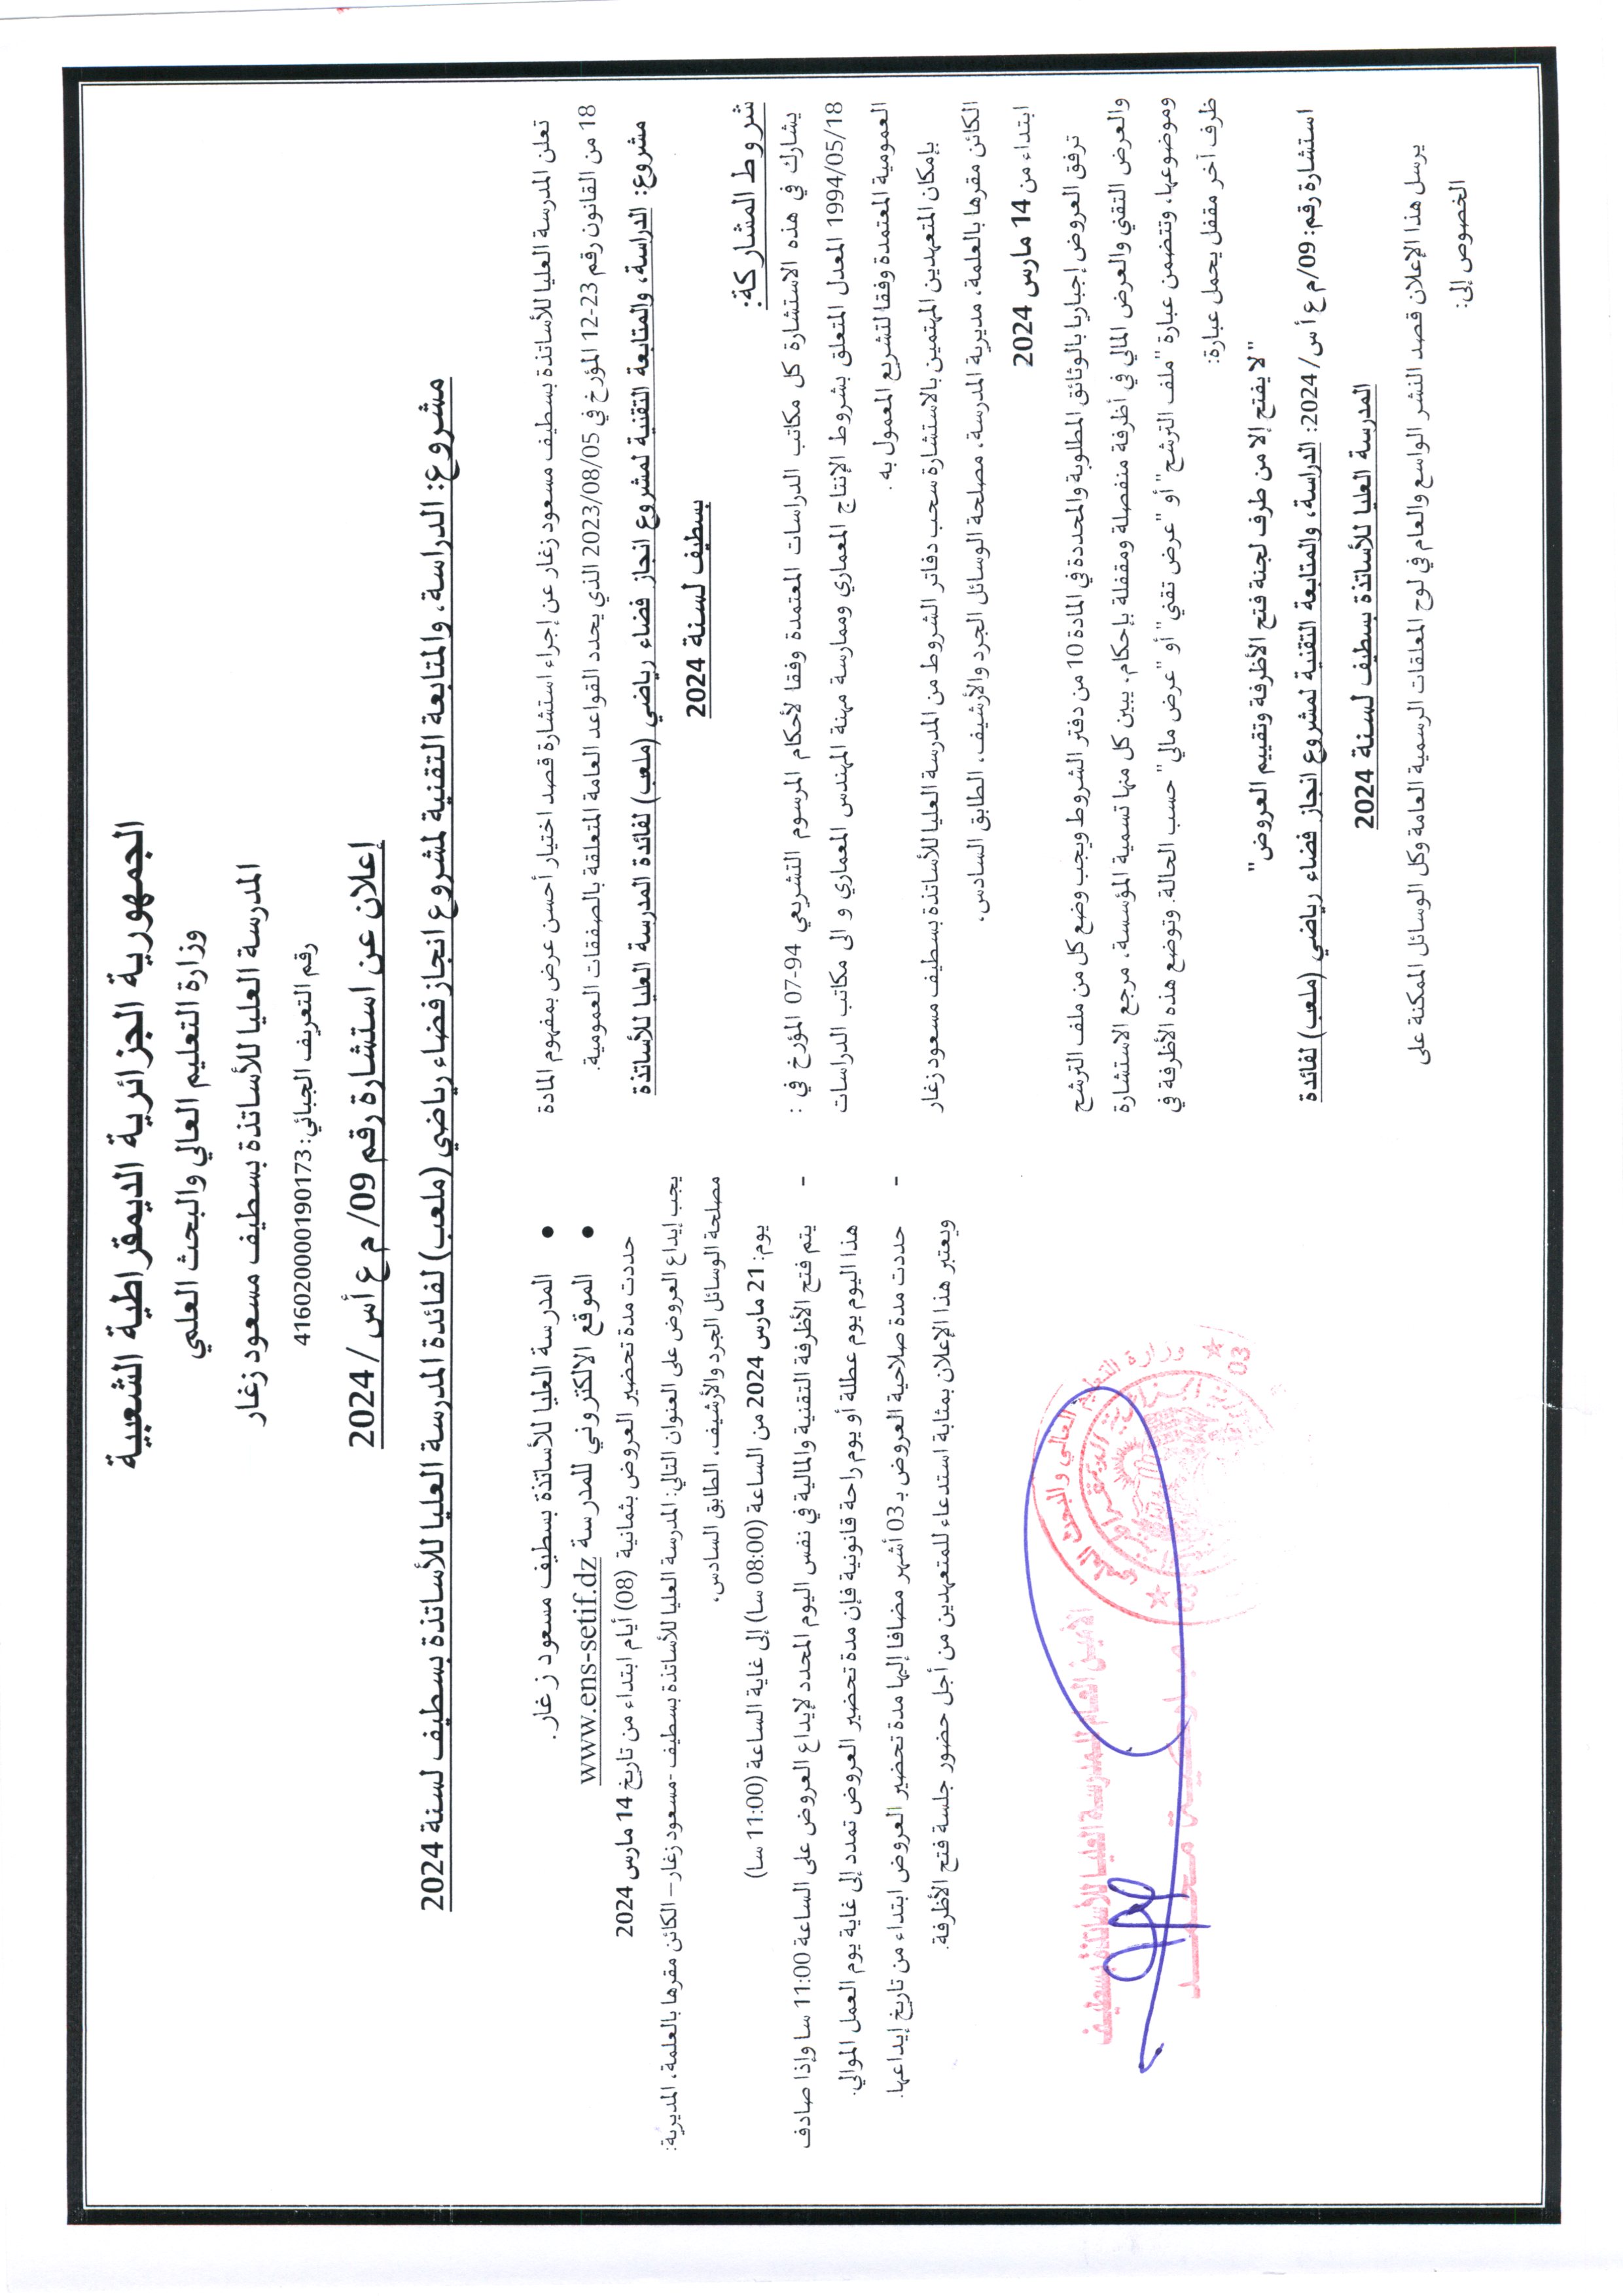 الجمهورية الجزائرية الديمقراطية الشعبية
وزارة التعليم العالي والبحث العلمي
المدرسة العليا للأساتذة بسطيف مسعود زغار
رقم التعريف الجبائي: 416020000190173
إعلان عن استشارة رقم 09/ م ع أس / 2024
مشروع: الدراسة، والمتابعة التقنية لمشروع انجاز فضاء رياضي (ملعب) لفائدة المدرسة العليا للأساتذة بسطيف لسنة 2024
تعلن المدرسة العليا للأساتذة بسطيف مسعود زغار عن إجراء استشارة قصد اختيار أحسن عرض بمفهوم المادة
18 من القانون رقم 23-12 المؤرخ في 2023/08/05 الذي يحدد القواعد العامة المتعلقة بالصفقات العمومية.
مشروع: الدراسة، والمتابعة التقنية لمشروع انجاز فضاء رياضي (ملعب) لفائدة المدرسة العليا للأساتذة
بسطيف لسنة 2024
شروط المشاركة:
يشارك في هذه الاستشارة كل مكاتب الدراسات المعتمدة وفقا لأحكام المرسوم التشريعي 94-07 المؤرخ في :
1994/05/18 المعدل المتعلق بشروط الإنتاج المعماري وممارسة مهنة المهندس المعماري و الى مكاتب الدراسات
العمومية المعتمدة وفقا لتشريع المعمول به .
بإمكان المتعهدين المهتمين بالاستشارة سحب دفاتر الشروط من المدرسة العليا للأساتذة بسطيف مسعود زغار
الكائن مقرها بالعلمة، مديرية المدرسة، مصلحة الوسائل الجرد والأرشيف، الطابق السادس.
ابتداء من 14 مارس 2024
ترفق العروض إجباريا بالوثائق المطلوبة والمحددة في المادة 10 من دفتر الشروط ويجب وضع كل من ملف الترشح
والعرض التقني والعرض المالي في أظرفة منفصلة ومقفلة بإحكام، يبين كل منها تسمية المؤسسة، مرجع الاستشارة
وموضوعها، وتتضمن عبارة "ملف الترشح" أو "عرض تقني" أو "عرض مالي" حسب الحالة. وتوضع هذه الأظرفة في
ظرف آخر مقفل يحمل عبارة:
"لا يفتح إلا من طرف لجنة فتح الأظرفة وتقييم العروض"
استشارة رقم: 09/م ع أ س/ 2024: الدراسة، والمتابعة التقنية لمشروع انجاز فضاء رياضي (ملعب) لفائدة
المدرسة العليا للأساتذة بسطيف لسنة 2024
يرسل هذا الإعلان قصد النشر الواسع والعام في لوح المعلقات الرسمية العامة وكل الوسائل الممكنة على
الخصوص إلى:
● المدرسة العليا للأساتذة بسطيف مسعود زغار.
● الموقع الالكتروني للمدرسة www.ens-setif.dz
حددت مدة تحضير العروض بثمانية (08) أيام ابتداء من تاريخ 14 مارس 2024
يجب إيداع العروض على العنوان التالي: المدرسة العليا للأساتذة بسطيف -مسعود زغار– الكائن مقرها بالعلمة، المديرية:
مصلحة الوسائل الجرد والأرشيف، الطابق السادس.
يوم: 21 مارس 2024 من الساعة (08:00 سا) إلى غاية الساعة (11:00 سا)
- يتم فتح الأظرفة التقنية والمالية في نفس اليوم المحدد لإيداع العروض على الساعة 11:00 سا وإذا صادف
هذا اليوم يوم عطلة أو يوم راحة قانونية فإن مدة تحضير العروض تمدد إلى غاية يوم العمل الموالي.
- حددت مدة صلاحية العروض بـ 03 أشهر مضافا إليها مدة تحضير العروض ابتداء من تاريخ إيداعها.
ويعتبر هذا الإعلان بمثابة استدعاء للمتعهدين من أجل حضور جلسة فتح الأظرفة.
الأمين العام للمدرسة العليا للأساتذة بسطيف
محمد
وزارة التعليم العالي والبحث العلمي
03
03